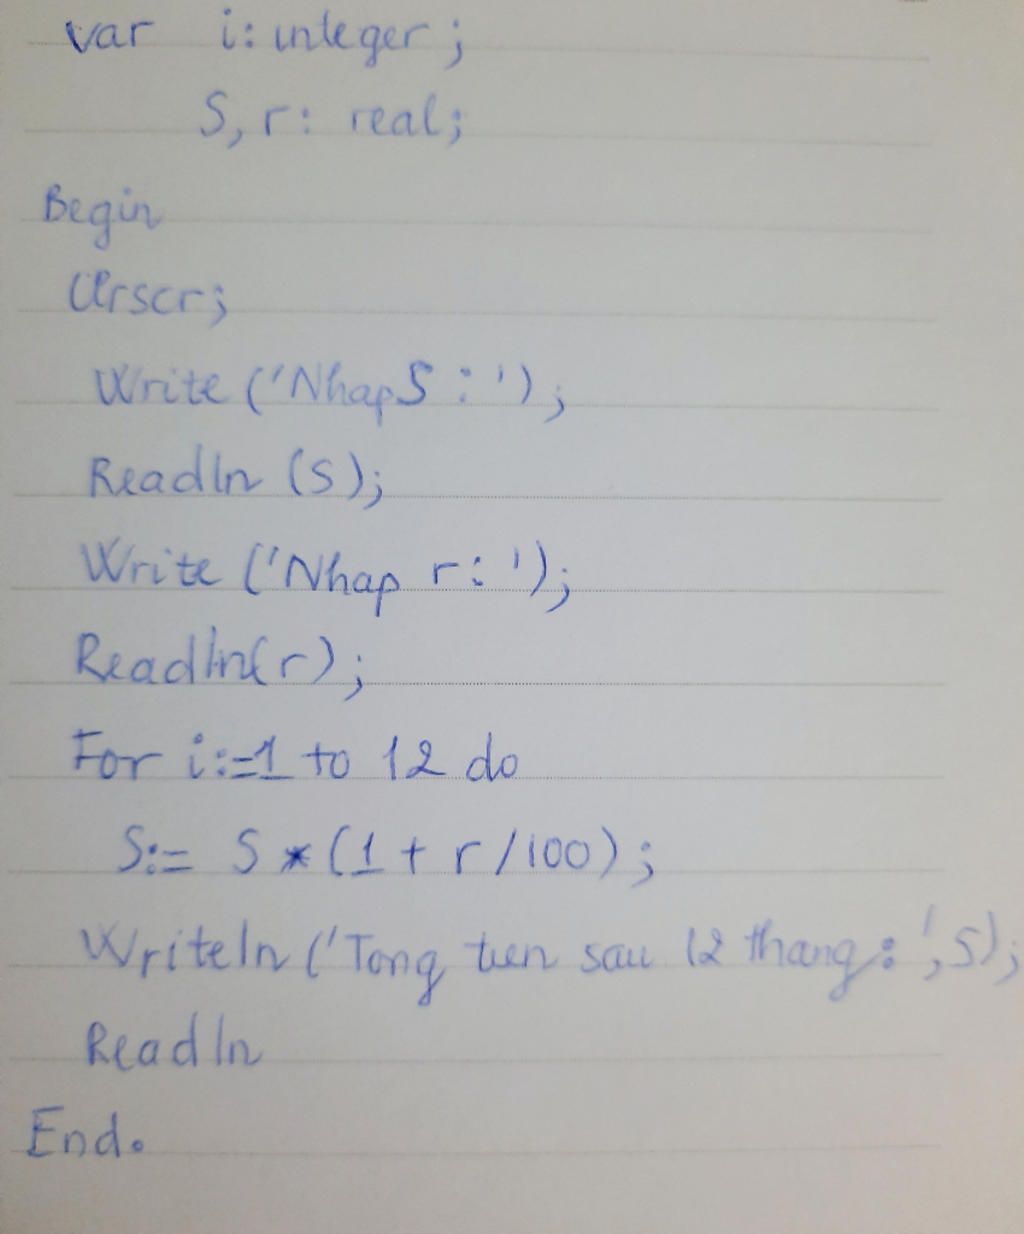 var i: integer;
S, r: real;
Begin
Clrscr;
Write ('Nhap S : ');
Readln (S);
Write ('Nhap r : ');
Readln(r);
For i:=1 to 12 do
S:= S * (1 + r / 100);
Writeln ('Tong tien sau 12 thang : ', S);
Readln
End.